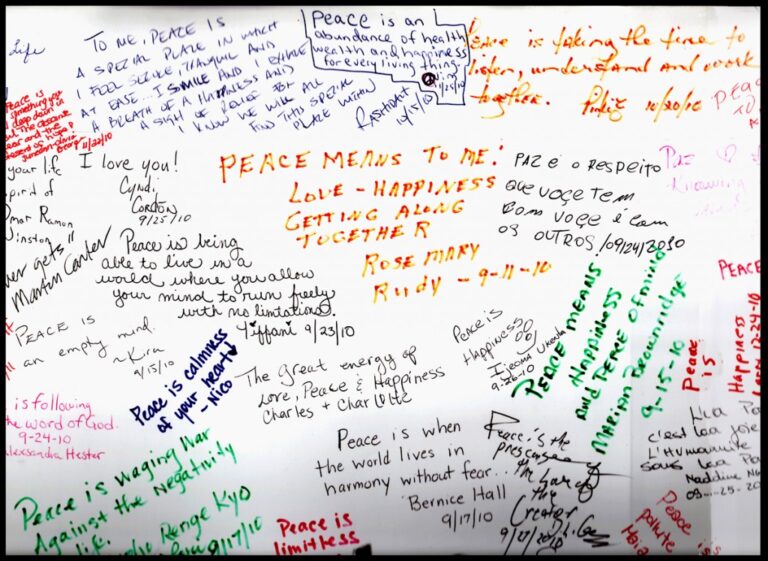 Life
TO ME, PEACE IS
A SPECIAL PLACE IN WHICH
I FEEL SECURE, TRANQUIL AND
AT EASE... I SMILE AND I EXHALE
A BREATH OF A HAPPINESS AND
A SIGH OF RELIEF FOR
KNOW WE WILL ALL
FIND THIS SPECIAL
PLACE WITHIN
10/15/10
Peace is an
abundance of health
wealth and happiness
for every living thing.
Peace is taking the time to
listen, understand and work
together.
10/20/10
Peace is
something you
deep down in
11/22/10
your life
Spirit of
Omar Ramon
Winston
ver gets"
Martin Carter
I love you!
Cyndi
Gordon
9/25/10
PEACE MEANS TO ME:
LOVE - HAPPINESS
GETTING ALONG
TOGETHER
ROSE MARY
Rudy - 9-11-10
PAZ É O RESPEITO
QUE VOÇE TEM
BOM VOÇE É COM
OS OUTROS/09/24/2010
PAZ
Knowing
Peace is being
able to live in a
world where you allow
your mind to run freely
with no limitations.
Tiffani 9/23/10
PEACE IS
an empty mind.
~Kira
9/15/10
Peace is calmness
of your heart
-Nico
The Great energy of
Love, Peace & Happiness
Charles + Charlotte
Peace is
Happiness
9-26-10
PEACE MEANS
Happiness
and Peace of mind
Marian Brownridge
9-15-10
PEACE
Happiness
12-24-10
Peace
is
is following
the word of God.
9-24-10
Alexsandra Hester
Peace is Waging War
Against the Negativity
life.
Renge Kyo
9/17/10
Peace is
limitless
Peace is when
the world lives in
harmony without fear...
Bernice Hall
9/17/10
Peace is the
presence of
the
the
Creator
9/27/2010
c'est la joie
L'Humanite
sans la
Peace
is